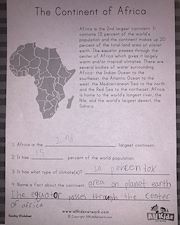 The Continent of Africa
Africa is the 2nd largest continent. It
contains 15 percent of the world's
population and the continent makes up 20
percent of the total land area of planet
earth. The equator passes through the
center of Africa which gives it largely
warm and/or tropical climates. There are
several bodies of water surrounding
Africa: the Indian Ocean to the
southeast, the Atlantic Ocean to the
west, the Mediterranean Sea to the north
and the Red Sea to the northeast. Africa
is home to the world's longest river, the
Nile, and the world's largest desert, the
Sahara.
1. Africa is the largest continent.
2. It has percent of the world population.
3. It has what type of climate(s)?
4. Name a fact about the continent. area on planet earth
The equator passes through the center
of africa
www.allkidsnetwork.com